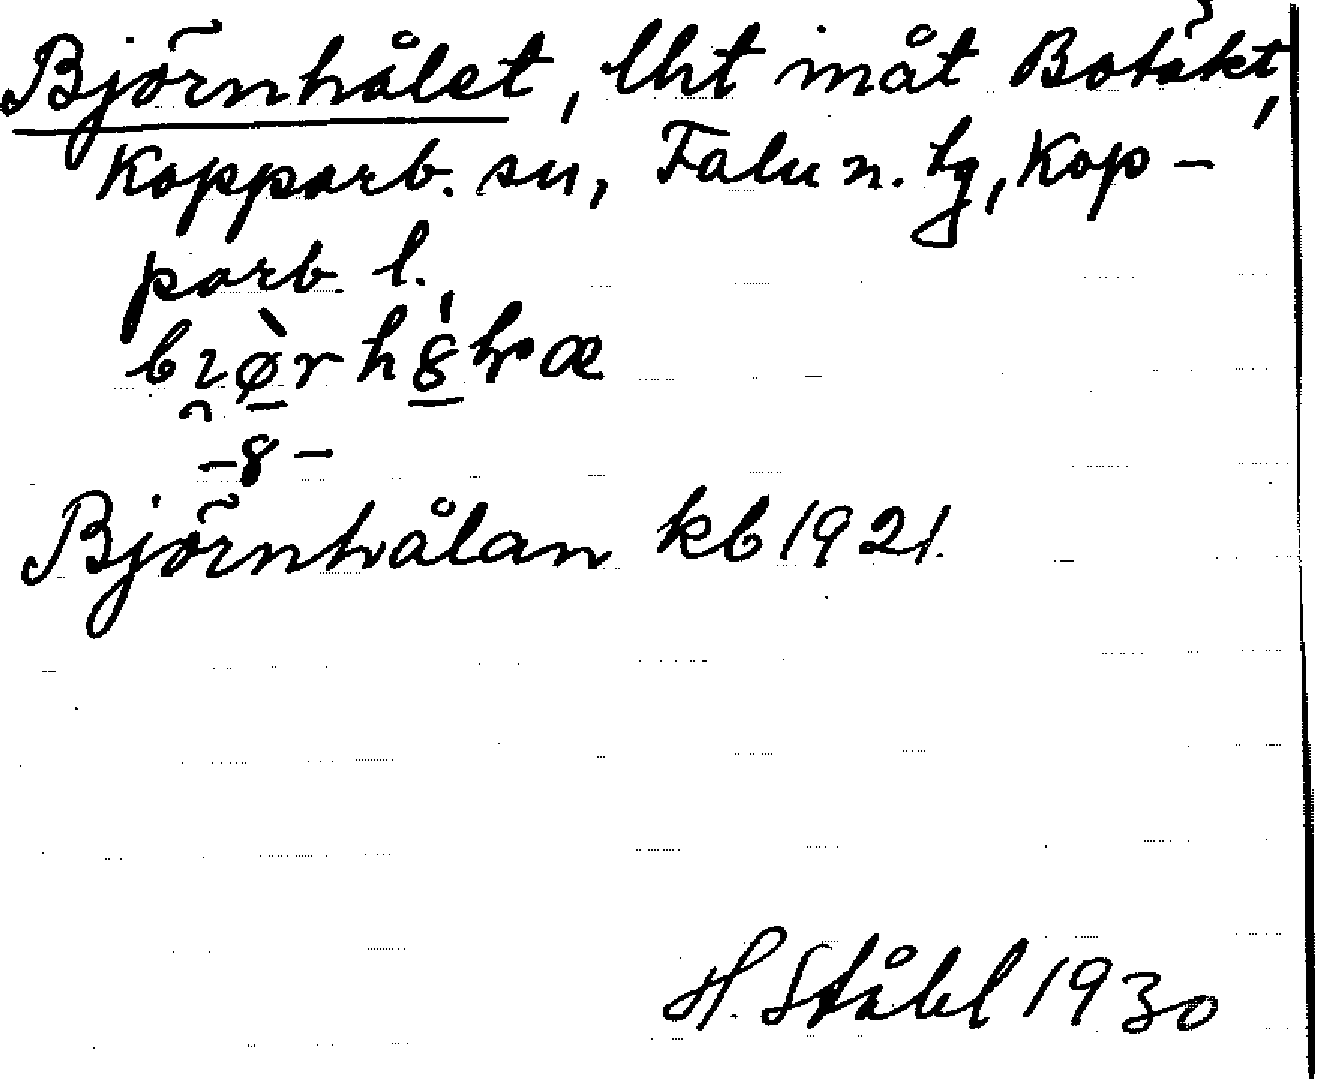 Björnhålet, lht måt Botäkt,
Kopparb. sn, Falu n. tg, Kop-
parb l.
Björnhålan kb 1921.
H. Ståhl 1930